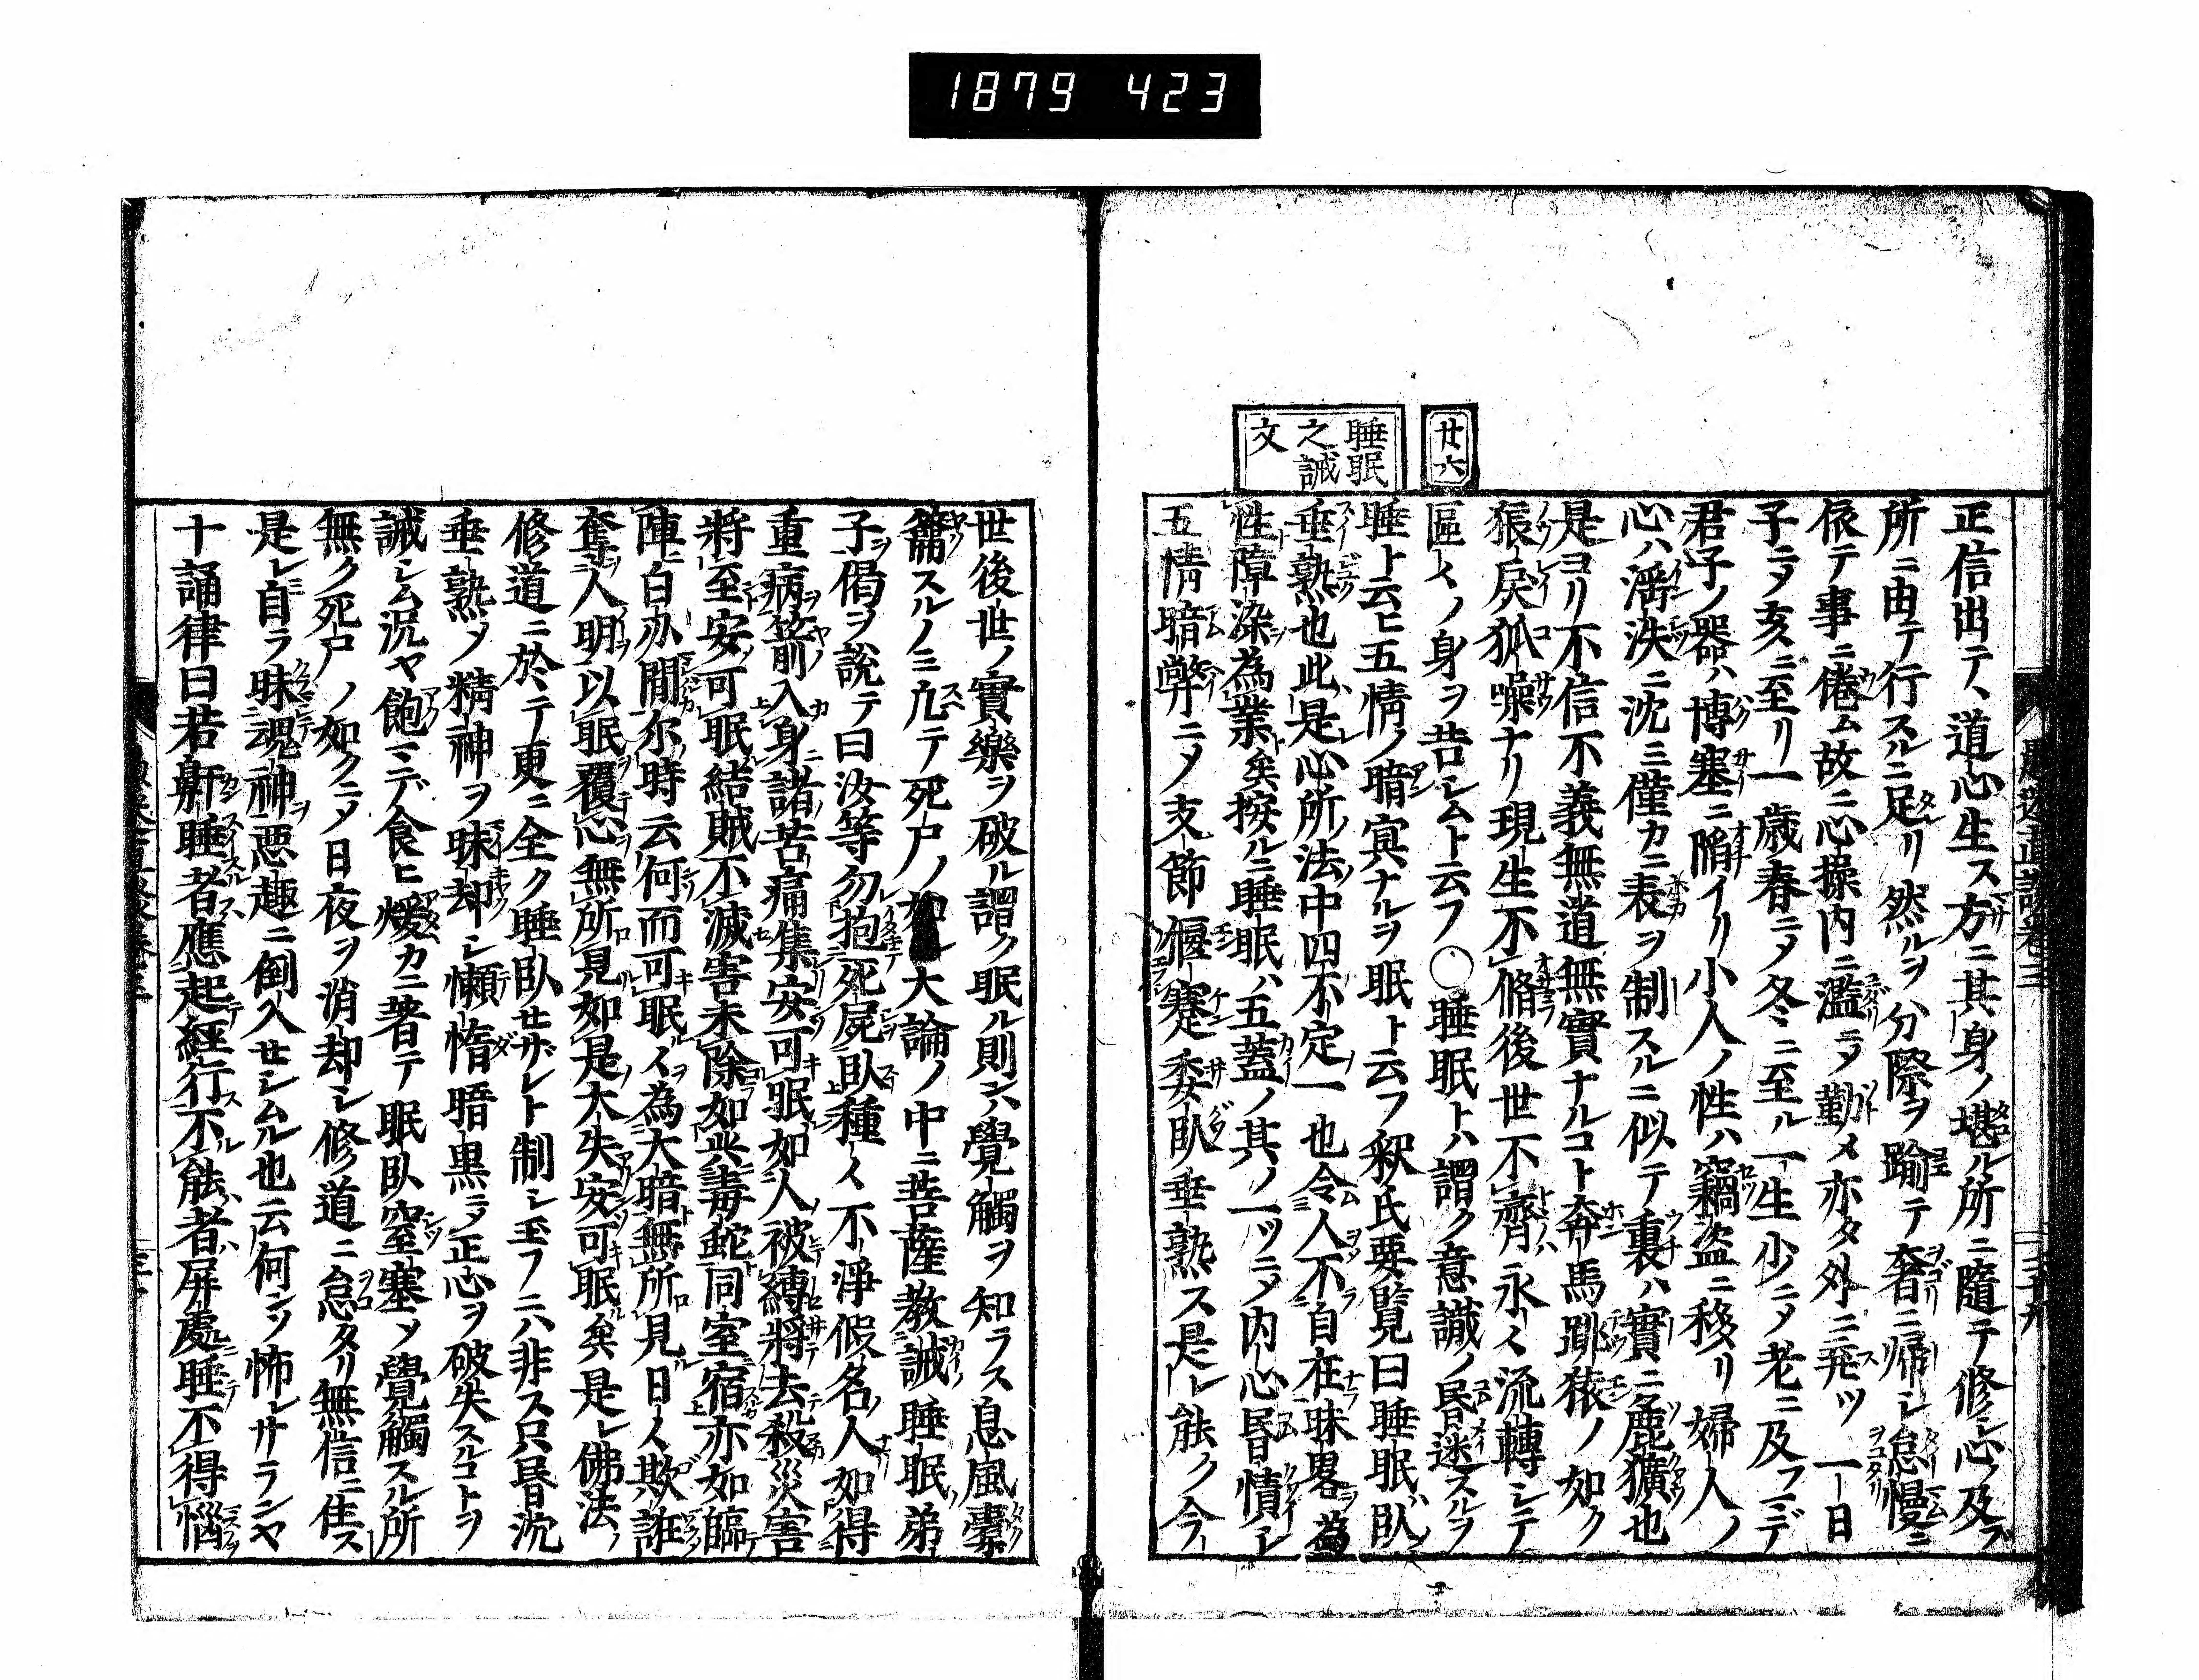 1879 423
廿六
睡眠
之誡
文
正信出テ、道心生ス方ニ其身ノ堪ル所ニ隨テ修シ心ノ及ブ
所ニ由テ行スルニ足リ然ルヲ分際ヲ踰テ奢ニ帰レ怠慢ニ
依テ事ニ倦ム故ニ心操内ニ濫テ勤メ亦タ外ニ死ツ一日
子ニメ亥ニ至リ一歳春ニメ冬ニ至ル一生少ニメ老ニ及フマデ
君子ノ器ハ博塞ニ陥イリ小人ノ性ハ竊盗ニ移リ婦人ノ
心ハ滛泆ニ沈ミ僅カニ表ヲ制スルニ似テ裏ハ實ニ麁獷也
是ヨリ不信不義無道無實ナルコト奔馬跳猿ノ如ク
狼戻狐噪ナリ現生不脩後世不齊永ク流轉シテ
區々ノ身ヲ苦レムト云フ〇睡眠トハ謂ク意識ノ昏迷スルヲ
睡ト云ヒ五情ノ暗冥ナルヲ眠ト云フ釈氏要覧曰睡眠臥
垂熟也此是心所法中四不定一也令人不自在昧畧為
性障染為業矣按ルニ睡眠ハ五蓋ノ其ノ一ツニメ内心昏憒レ
五情暗弊ニメ支節偃蹇委臥垂熟ス是レ能ク今
世後世ノ實樂ヲ破ル謂ク眠ル則ンハ覺觸ヲ知ラス息風嚢
籥スルノミ尤テ死尸ノ如レ大論ノ中ニ菩薩教誡睡眠弟
子偈ヲ説テ曰汝等勿抱死屍臥種々不淨假名人如得
重病箭入身諸苦痛集安可眠如人被縛將去殺災害
將至安可眠結賊不滅害未除如共毒蛇同室宿亦如臨
陣白刃間尓時云何而可眠々為大暗無所見日々欺誑
奪人明以眠覆心無所見如是大失安可眠矣是レ佛法ノ
修道ニ於テ更ニ全ク睡臥セザレト制シ玉フニハ非ス只昏沈
垂熟メ精神ヲ昧却シ懶惰暗黒ニメ正心ヲ破失スルコトヲ
誡シム況ヤ飽マデ食ヒ煖カニ著テ眠臥窒塞メ覺觸スル所
無ク死尸ノ如クニメ日夜ヲ消却シ修道ニ怠タリ無信ニ住ス
是レ自ラ昧魂神ヲ惡趣ニ倒入セシムル也云何ソ怖レサランヤ
十誦律曰若鼾睡者應起經行不能者屏處睡不得惱